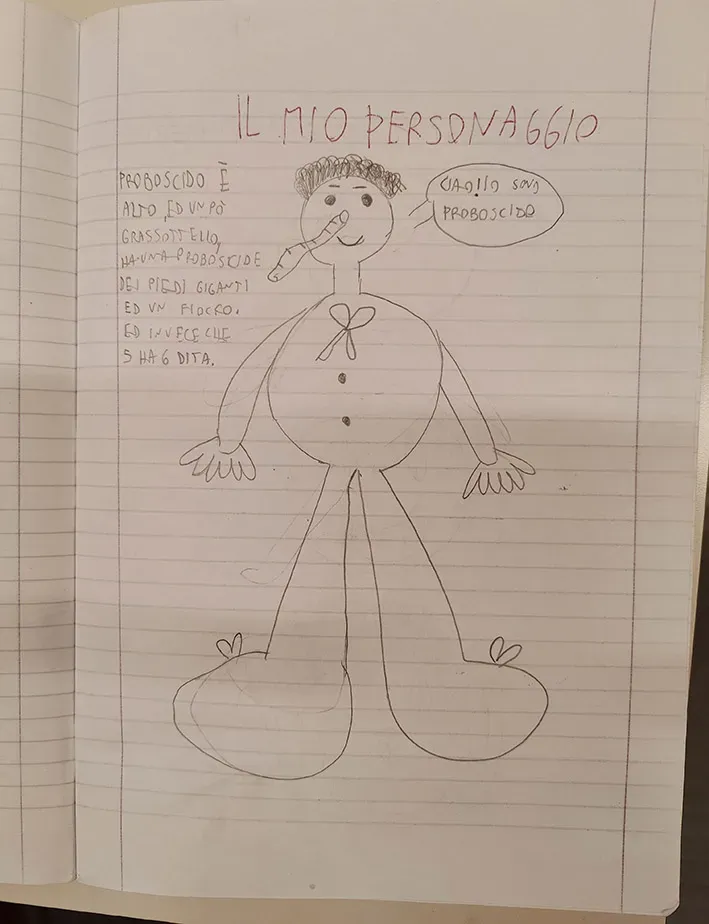 IL MIO PERSONAGGIO
PROBOSCIDO È
ALTO, ED UN PÒ
GRASSOTTELLO,
HA UNA PROBOSCIDE
DEI PIEDI GIGANTI
ED UN FIOCRO.
ED INVECE CHE
5 HA 6 DITA.
CIAO! IO SONO
PROBOSCIDO